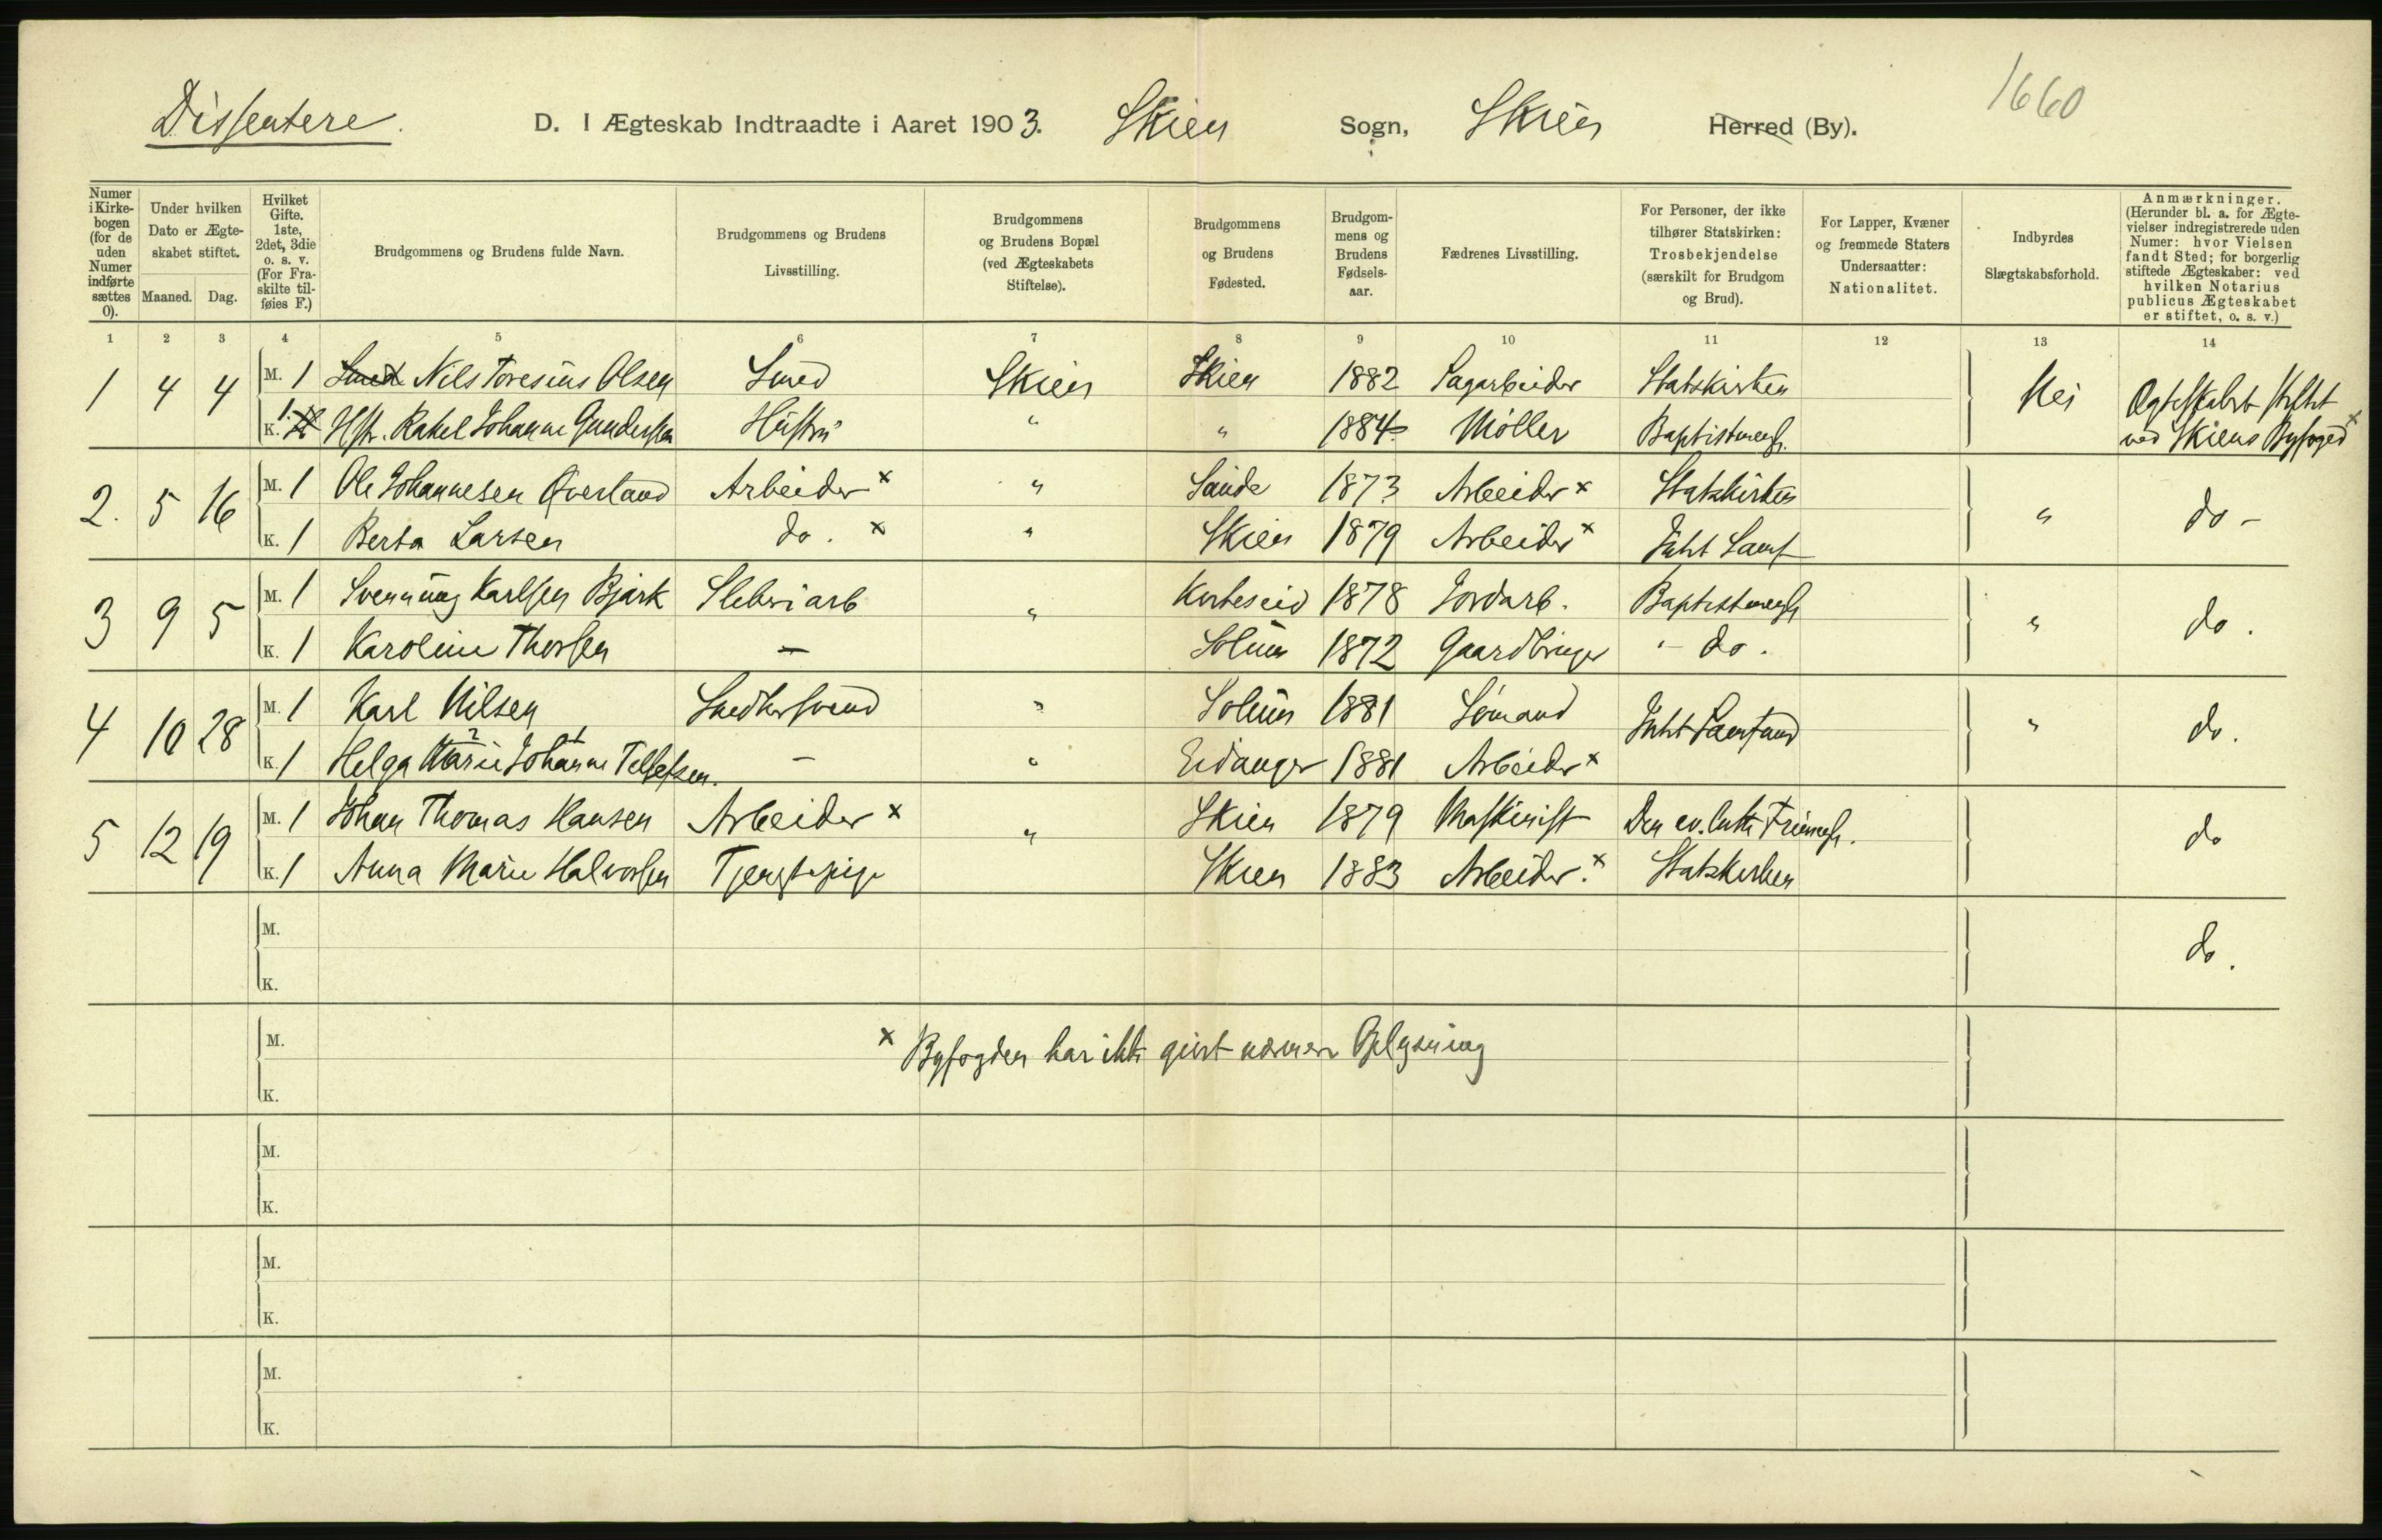 1660
Dissentere. D. I Ægteskab Indtraadte i Aaret 1903. Skien Sogn, Skien Herred (By).
Numer i Kirkebogen (for de uden Numer indførte sættes 0).
Under hvilken Dato er Ægteskabet stiftet.
Maaned. Dag.
Hvilket Gifte. 1ste, 2det, 3die o. s. v. (For Fraskilte tilføies F.)
Brudgommens og Brudens fulde Navn.
Brudgommens og Brudens Livsstilling.
Brudgommens og Brudens Bopæl (ved Ægteskabets Stiftelse).
Brudgommens og Brudens Fødested.
Brudgommens og Brudens Fødselsaar.
Fædrenes Livsstilling.
For Personer, der ikke tilhører Statskirken: Trosbekjendelse (særskilt for Brudgom og Brud).
For Lapper, Kvæner og fremmede Staters Undersaatter: Nationalitet.
Indbyrdes Slægtskabsforhold.
Anmærkninger. (Herunder bl. a. for Ægtevielser indregistrerede uden Numer: hvor Vielsen fandt Sted; for borgerlig stiftede Ægteskaber: ved hvilken Notarius publicus Ægteskabet er stiftet, o. s. v.)
1 2 3 4 5 6 7 8 9 10 11 12 13 14
1 4 4 M. 1 Smed Nils Toresius Olsen Smed Skien Skien 1882 Sagarbeider Statskirken Nei Ægteskabet stiftet
K. 1 Hstr. Rakel Johanne Gundersen Hustru " " 1884 Møller Baptistmengh. ved Skiens Byfoged x
2. 5 16 M. 1 Ole Johannesen Øverland Arbeider x " Saude 1873 Arbeider x Statskirken " do -
K. 1 Berta Larsen do. x " Skien 1879 Arbeider x Luth Samf
3 9 5 M. 1 Svennung Karlsen Bjørk Sliberiarb " 1878 Jordarb. Baptistmengh " do.
K. 1 Karoline Thorsen — Solum 1872 Gaardbruger - do.
4 10 28 M. 1 Karl Nilsen Snedkersvend " Solum 1881 Sømand Luth Samfund " do.
K. 1 Helga Marie Johanne Tellefsen. — " Eidanger 1881 Arbeider x
5 12 19 M. 1 Johan Thomas Hansen Arbeider x " Skien 1879 Maskinist Den ev. luth Frimengh. do
K. 1 Anna Marie Halvorsen Tjenestepige Skien 1883 Arbeider. x Statskirken
M. do.
K.
M. x Byfogden har ikke givet nærmere Oplysning
K.
M.
K.
M.
K.
M.
K.